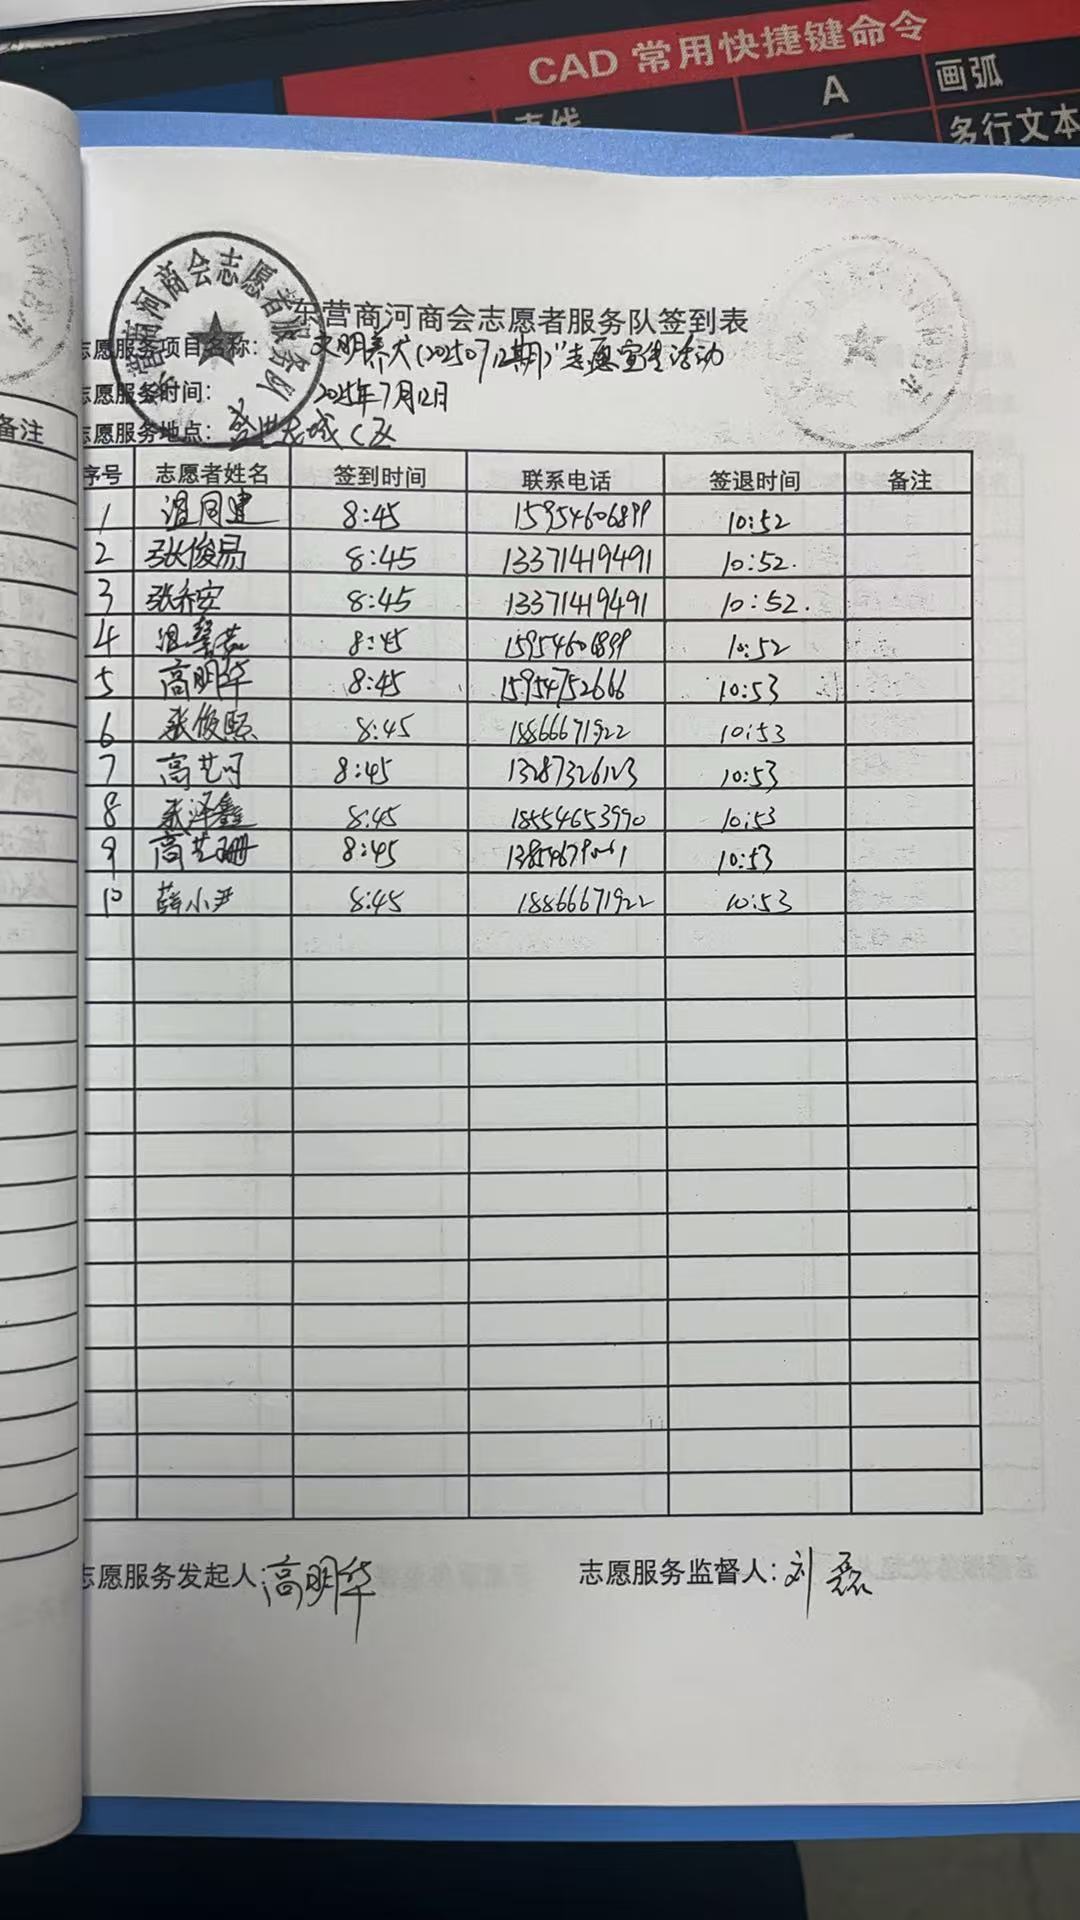 CAD 常用快捷键命令
直线 A 画弧
多行文本
备注
东营商河商会志愿者服务队
东营商河商会志愿者服务队签到表
志愿服务项目名称: 文明养犬(20250712期)"志愿宣传活动
志愿服务时间: 2025年7月12日
志愿服务地点: 盛世龙城C区
序号 志愿者姓名 签到时间 联系电话 签退时间 备注
1 温同建 8:45 15954606899 10:52
2 张俊易 8:45 13371419491 10:52.
3 张乔安 8:45 13371419491 10:52.
4 温馨茹 8:45 15954606899 10:52
5 高明华 8:45 15954752666 10:53
6 张俊熙 8:45 18866671922 10:53
7 高艺可 8:45 13287326123 10:53
8 张泽鑫 8:45 18554653990 10:53
9 高艺珊 8:45 10:53
10 薛小尹 8:45 18866671922 10:53
志愿服务发起人: 高明华 志愿服务监督人: 刘磊